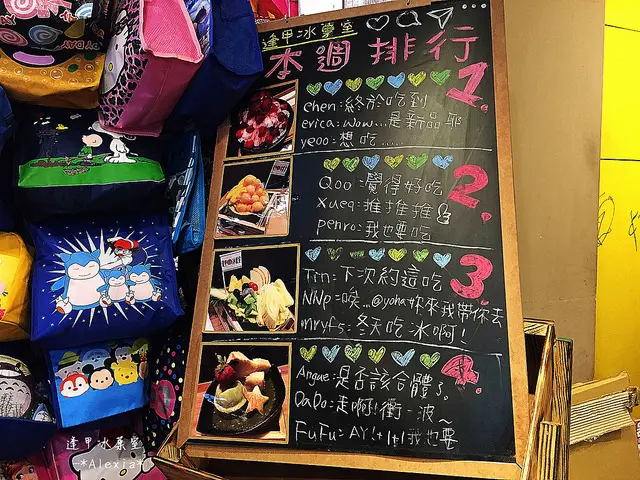 逢甲冰菓室
本週排行
1.
chen:終於吃到
erica:wow...是新品耶
yeoo:想吃.....
2.
Qoo:覺得好吃
Xueq:推推推
penro:我也要吃
3.
Tin:下次約這吃
NNp:唉...@yoha妳來我帶你去
mryfs:冬天吃冰啊!
4.
Angue:是否該合體了
DaDo:走啊!衝一波~
FuFu:AY!+1我也要
逢甲冰菓室
-*Alexia*-